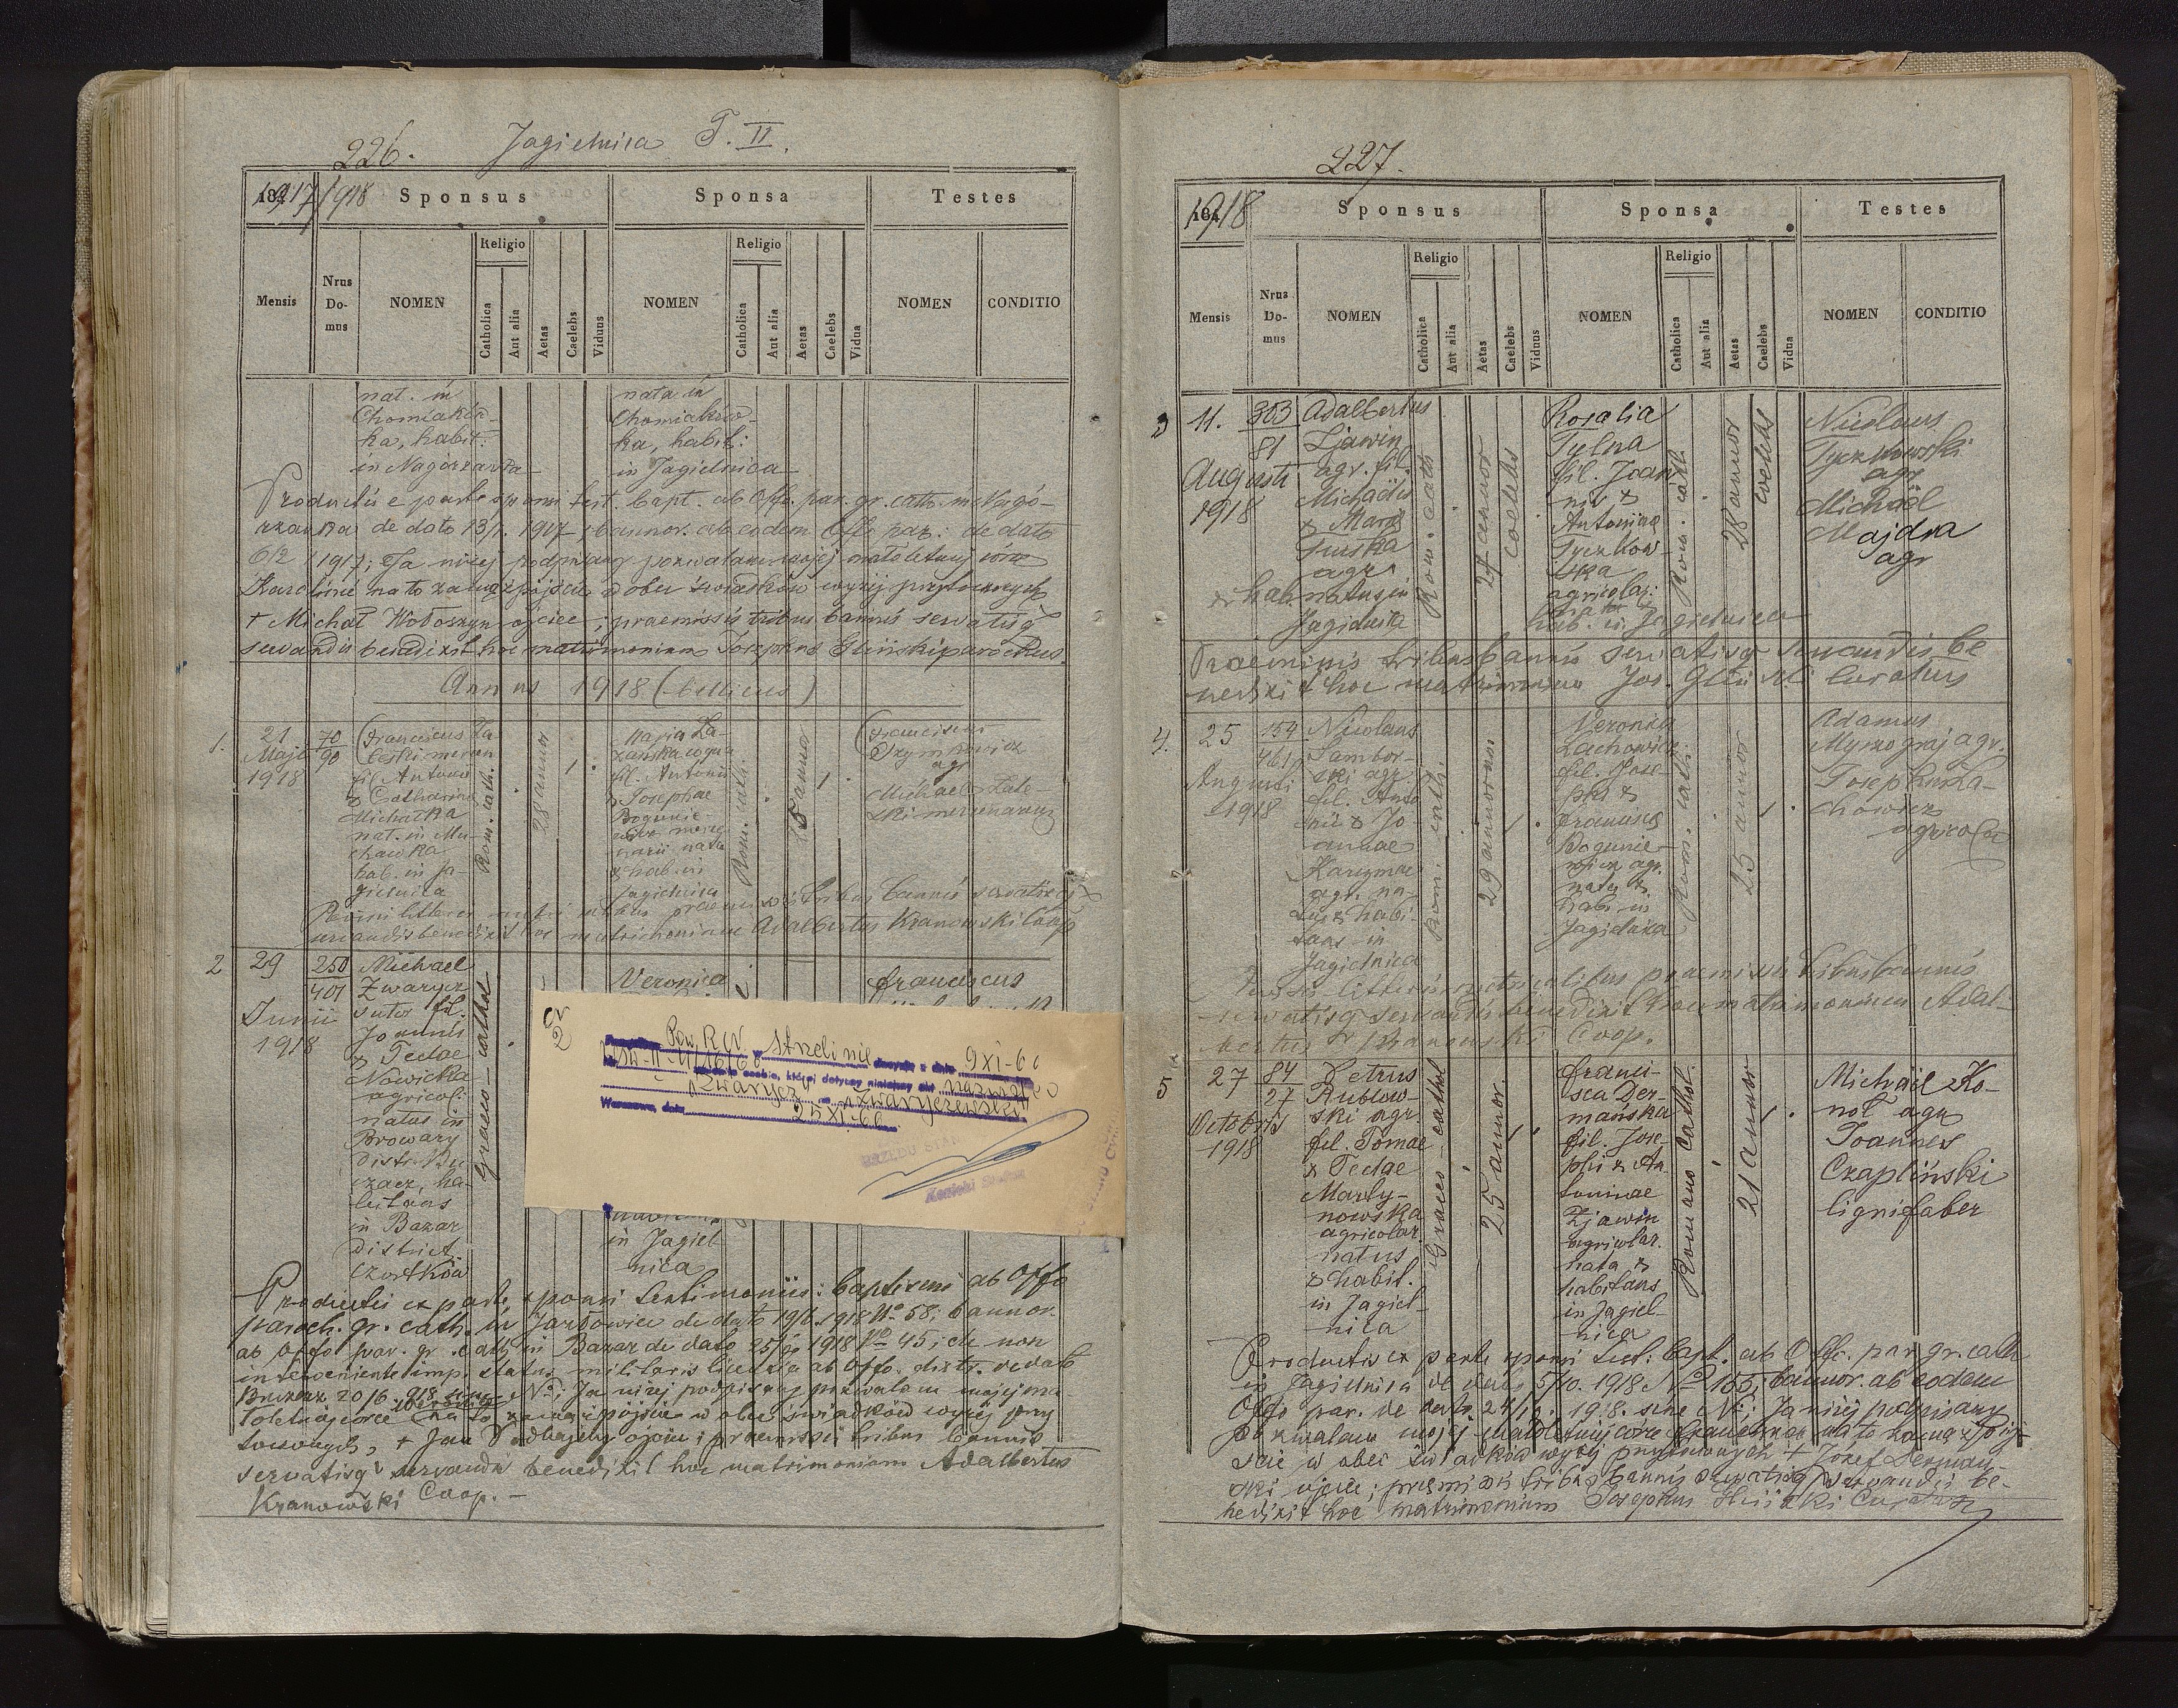 226. Jagielnica T. II.
1917/1918 Sponsus Sponsa Testes
Mensis
Nrus Do-mus
NOMEN
Religio
Catholica
Aut alia
Aetas
Caelebs
Viduus
NOMEN
Religio
Catholica
Aut alia
Aetas
Caelebs
Vidua
NOMEN
CONDITIO
nat. in
Chomiaków-
ka, habit:
in Nagórzanka
nata in
Chomiaków-
ka, habit:
in Jagielnica
Productis e parte sponsi test. bapt. ab Offo. par. gr. cath. in Nagó-
rzanka de dato 13/1. 1917, bannor. ab eodem Offo par. de dato
6/2 1917; Ja niżej podpisany pozwalam mojej małoletniej
Karolinie na to zamążpójście w obec świadków wyżej przytoczonych
+ Michał Wołoszyn ojciec; praemissis tribus bannis servatisq
servandis benedixit hoc matrimonium Josephus Gliński parochus.
Annus 1918 (bellicus)
1.
21
Maji
1918
70
90
Franciscus
fil. Antonii
& Catharina
Michałka
nat. in Mu-
chawka
hab. in Ja-
gielnica
Rom. cath.
28 annor
Maria Ła-
zańska
fil. Antonii
& Josephae
Bogunie-
wicz
narii nata
& hab. in
Jagielnica
Rom. cath.
Francisci
Szymkowicz
agr
Michael Zale-
ski mercenarius
praemissis tribus bannis servatisq
servandis benedixit hoc matrimonium Adalbertus Kranowski Coop
2
29
Junii
1918
250
401
Michael
Zwarycz
sutor fil.
Joannis
& Teclae
Nowicka
agricol:
natus in
Browary
distr. Bu-
czacz, ha-
bitans
in Bazar
district
Czortków
Graeco-cathol
Veronica
in Jagiel
nica
Franciscus
Strzelinie
decyzją z dnia 9 XI-60
osobie, której dotyczy niniejszy akt nazwisko
"Zwarycz" na "Zwaryczewski"
Warszawa, dnia 25 XI-60
URZĘDU STAN
Productis ex parte sponsi testimoniis: baptismi ab Offo
paroch. gr. cath. in Jazłowice de dato 19/6. 1918 No. 58; bannor.
ab Offo par. gr. cath. in Bazar de dato 25/6 1918 No 45; cu non
interveniente imp. status militaris licentia ab Offo. distr. de dato
Buczacz 20/6. 918 sine No.; Ja niżej podpisany pozwalam mojej ma-
łoletniej córce Weronice na to zamążpójście w obec świadków wyżej przy
toczonych, + Jan Podhajny ojciec; praemissis tribus bannis
servatisq servandis benedixit hoc matrimonium Adalbertus
Kranowski Coop. -
227.
1918 Sponsus Sponsa Testes
Mensis
Nrus Do-mus
NOMEN
Religio
Catholica
Aut alia
Aetas
Caelebs
Viduus
NOMEN
Religio
Catholica
Aut alia
Aetas
Caelebs
Vidua
NOMEN
CONDITIO
3
11.
Augusti
1918
303
81
Adalbertus
Zjawin
agr. fil.
Michaëlis
& Maria
Turska
agr.
& hab. natus in
Jagielnica
Rom. cath
27 annor
coelebs
Rosalia
Tylna
fil. Joan
nis &
Antonina
Tyczkow-
ska
agricolar:
hab. in Jagielnica
Rom. cath.
28 annor
coelebs
Nicolaus
Tyczkowski
agr
Michaël
Majdra
agr
Praemissis tribus bannis servatisq servandis be
nedixit hoc matrimonium Jos. Gliński Curatus
4.
25
Augusti
1918
154
461
Nicolaus
Sambor-
ski agr.
fil. Anto
nii & Jo-
annae
Karczmar
agr. na-
tus & habi-
tans in
Jagielnica
Rom. cath.
29 annorum.
Veronica
Lachowicz
fil. Jose-
phi &
Francisca
Bogunie-
wicz agr.
nata &
hab. in
Jagielnica
Rom. cath.
25 annor
Adamus
Myszograj agr.
Josephus La-
chowicz
agricola
praemissis tribus bannis
servatisq servandis benedixit hoc matrimonium Adal-
bertus Kranowski Coop.
5
27
Octobris
1918
84
27
Petrus
Rublow-
ski agr.
fil. Tomae
& Teclae
Marty-
nowska
agricolar.
natus
& habit.
in Jagiel-
nica
Graeco-cathol
25 annor.
Franci-
sca Der-
mańska
fil. Jose-
phi & An-
toninae
Zjawin
agricolar.
nata &
habitans
in Jagiel-
nica
Romano Cathol.
21 annor
Michaël Ko-
nol agr
Joannes
Czapliński
lignifaber
Productis ex parte sponsi test. bapt. ab Offo. par. gr. cath
in Jagielnica de dato 5/10. 1918 No 155; bannor. ab eodem
Offo par. de dato 27/10. 1918. sine No.; Ja niżej podpisany
pozwalam mojej małoletniej córce Franciszce na to zamążpój-
ście w obec świadków wyżej przytoczonych + Józef Dermań-
ski ojciec; praemissis tribus bannis servatisq servandis be-
nedixit hoc matrimonium Josephus Gliński Curatus